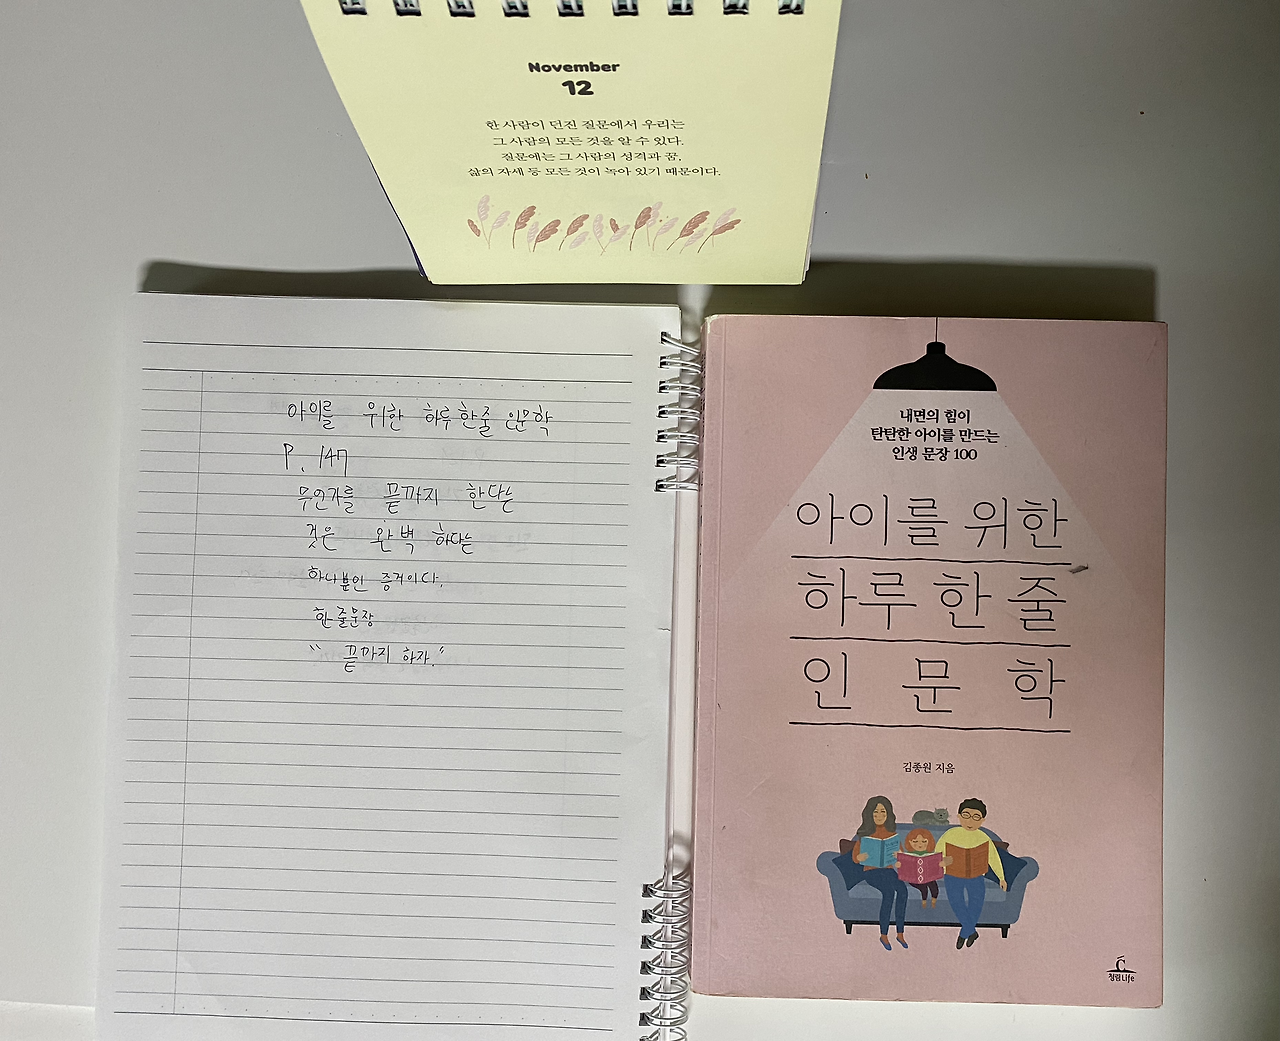 November
12
한 사람이 던진 질문에서 우리는
그 사람의 모든 것을 알 수 있다.
질문에는 그 사람의 성격과 꿈,
삶의 자세 등 모든 것이 녹아 있기 때문이다.
아이를 위한 하루 한줄 인문학
P. 147
무언가를 끝까지 한다는
것은 완벽 하다는
하나뿐인 증거이다.
한 줄문장
" 끝까지 하자."
내면의 힘이
탄탄한 아이를 만드는
인생 문장 100
아이를 위한
하루 한 줄
인 문 학
김종원 지음
청림Life